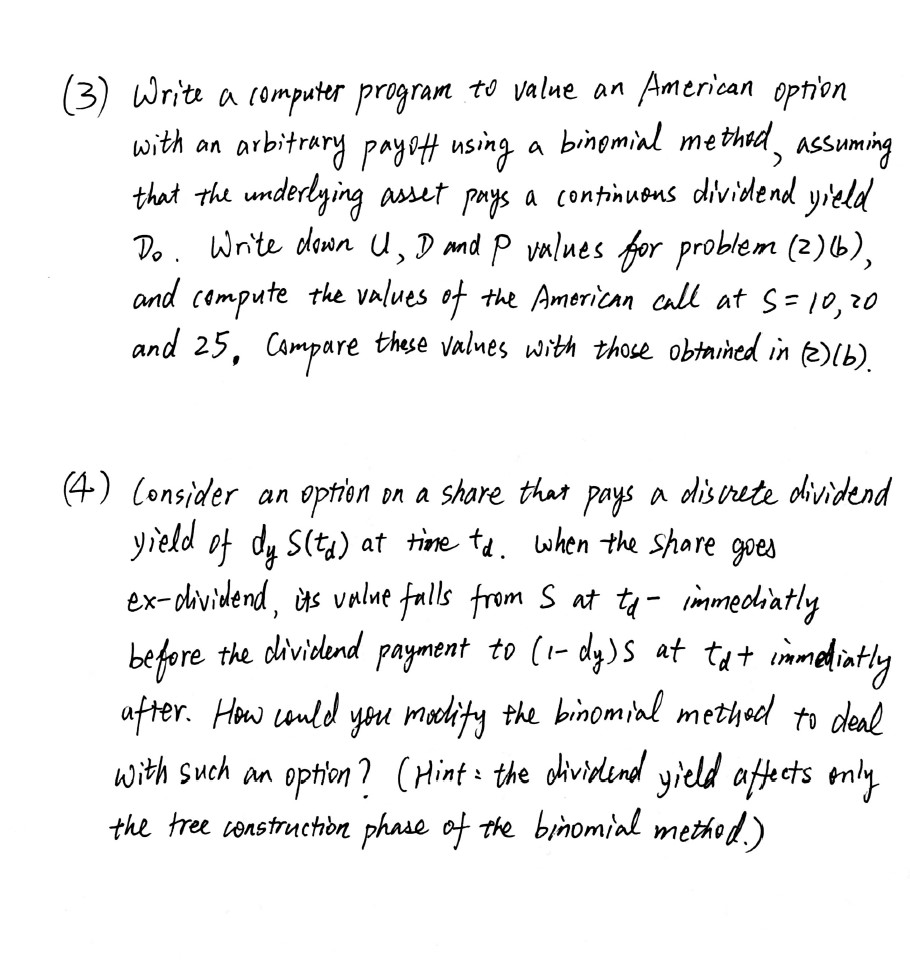 (3) Write a computer program to value an American option
with an arbitrary payoff using a binomial method, assuming
that the underlying asset pays a continuous dividend yield
D₀. Write down U, D and P values for problem (2)(b),
and compute the values of the American call at S = 10, 20
and 25. Compare these values with those obtained in (2)(b).
(4) Consider an option on a share that pays a discrete dividend
yield of dy S(td) at time td. When the share goes
ex-dividend, its value falls from S at td- immediatly
before the dividend payment to (1-dy)S at td+ immediatly
after. How could you modify the binomial method to deal
with such an option? (Hint: the dividend yield affects only
the tree construction phase of the binomial method.)